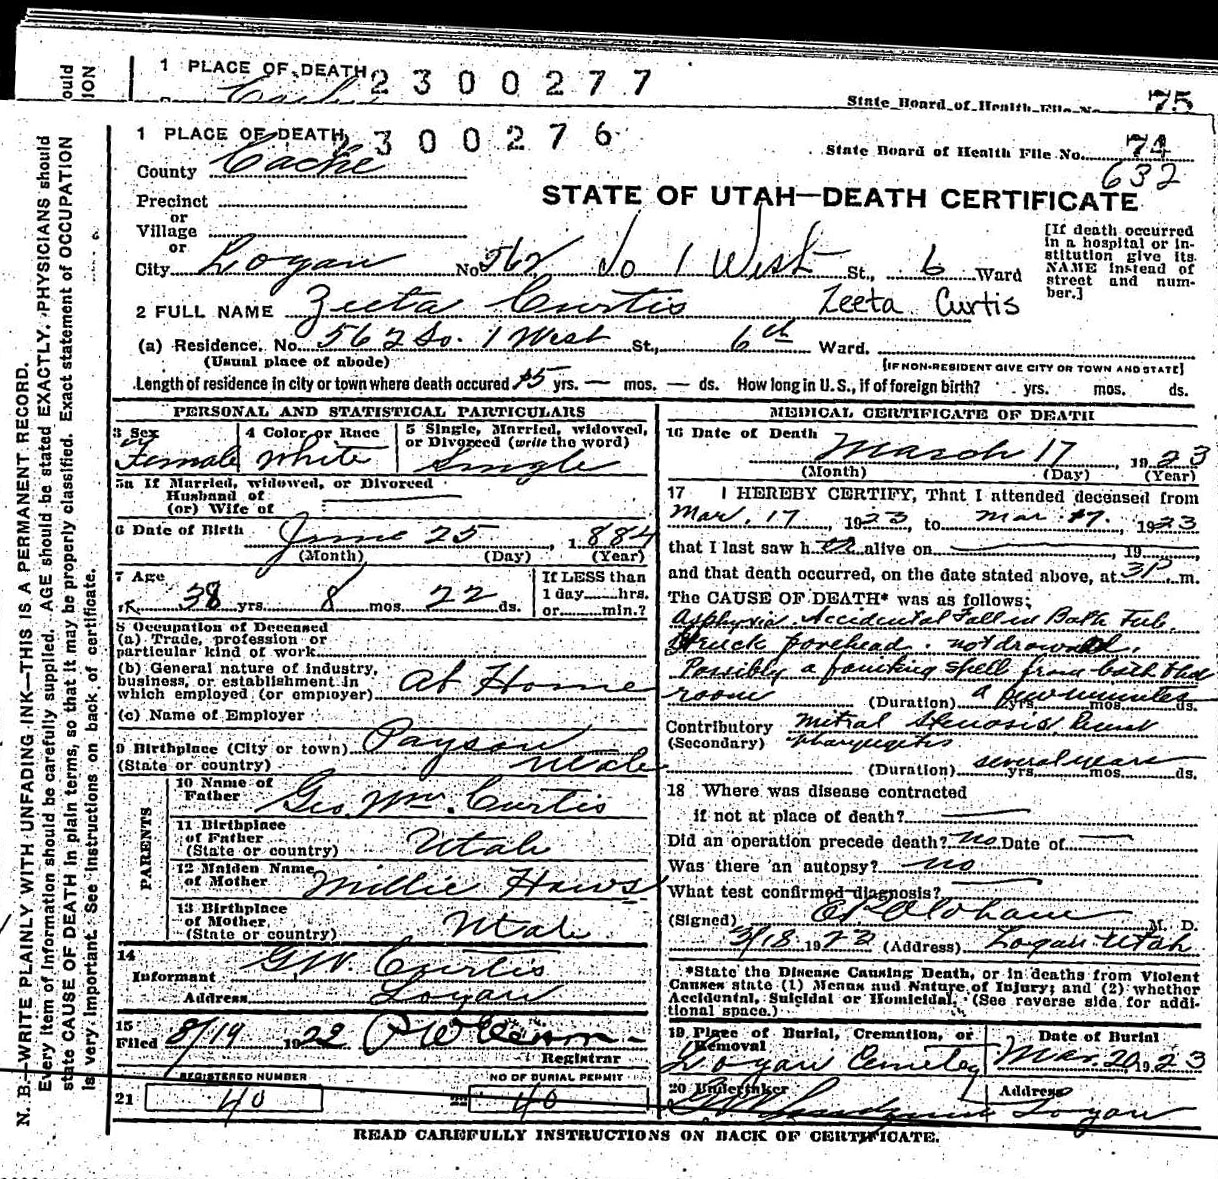 1 PLACE OF DEATH 2300277
State Board of Health File No. 75
1 PLACE OF DEATH 2300276
State Board of Health File No. 74
632
County Cache
STATE OF UTAH—DEATH CERTIFICATE
Precinct
or
Village
or
City Logan No 562 So 1 West St., 6 Ward
[If death occurred in a hospital or institution give its NAME instead of street and number.]
2 FULL NAME Zeeta Curtis Zeeta Curtis
(a) Residence. No. 562 So. 1 West St., 6th Ward.
(Usual place of abode) [IF NON-RESIDENT GIVE CITY OR TOWN AND STATE]
Length of residence in city or town where death occured 15 yrs. — mos. — ds. How long in U.S., if of foreign birth? yrs. mos. ds.
PERSONAL AND STATISTICAL PARTICULARS
3 Sex Female
4 Color or Race White
5 Single, Married, widowed, or Divorced (write the word) Single
5a If Married, widowed, or Divorced
Husband of
(or) Wife of
6 Date of Birth June 25, 1884
(Month) (Day) (Year)
7 Age 38 yrs. 8 mos. 22 ds.
If LESS than
1 day......hrs.
or......min.?
8 Occupation of Deceased
(a) Trade, profession or
particular kind of work
(b) General nature of industry,
business, or establishment in
which employed (or employer) At Home
(c) Name of Employer
9 Birthplace (City or town) Payson
(State or country) Utah
PARENTS
10 Name of
Father Geo Wm. Curtis
11 Birthplace
of Father
(State or country) Utah
12 Maiden Name
of Mother Millie Haws
13 Birthplace
of Mother
(State or country) Utah
14
Informant GW. Curtis
Address Logan
15
Filed 8/19 1922
Registrar
REGISTERED NUMBER
21 40
NO OF BURIAL PERMIT
22 40
MEDICAL CERTIFICATE OF DEATH
16 Date of Death March 17, 1923
(Month) (Day) (Year)
17 I HEREBY CERTIFY, That I attended deceased from
Mar. 17, 1923, to Mar. 17, 1923
that I last saw h er alive on , 19
and that death occurred, on the date stated above, at 3P m.
The CAUSE OF DEATH* was as follows:
Asphyxia. Accidental Fall in Bath Tub.
Struck forehead. not drowned.
Possibly a fainting spell from bath
room (Duration) a few minutes yrs. mos. ds.
Contributory Mitral Stenosis,
(Secondary) Pharyngitis
(Duration) several years yrs. mos. ds.
18 Where was disease contracted
if not at place of death?
Did an operation precede death? no Date of
Was there an autopsy? no
What test confirmed diagnosis?
(Signed) Oldham M. D.
3/18 1923 (Address) Logan Utah
*State the Disease Causing Death, or in deaths from Violent
Causes state (1) Menas and Nature of Injury; and (2) whether
Accidental, Suicidal or Homicidal. (See reverse side for addi-
tional space.)
19 Place of Burial, Cremation, or
Removal Logan Cemetery
Date of Burial
Mar. 20 1923
20 Undertaker
Address Logan
READ CAREFULLY INSTRUCTIONS ON BACK OF CERTIFICATE.
N. B.—WRITE PLAINLY WITH UNFADING INK—THIS IS A PERMANENT RECORD.
Every item of information should be carefully supplied. AGE should be stated EXACTLY. PHYSICIANS should
state CAUSE OF DEATH in plain terms, so that it may be properly classified. Exact statement of OCCUPATION
is very important. See instructions on back of certificate.